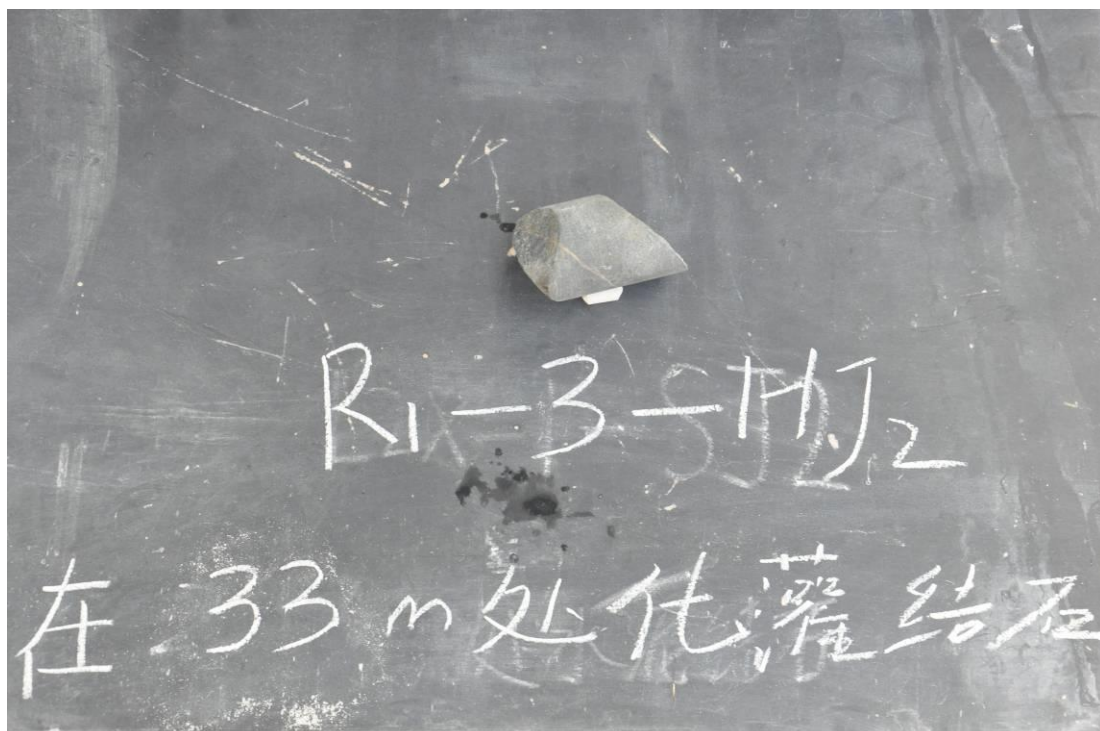 R1-3-HJ2
在33m处化灌结石